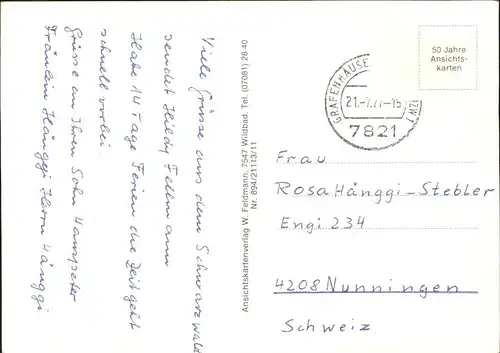 Viele Grüsse aus dem Schwarzwald
sendet Hildy Fellmann
Habe 14 Tage Ferien die Zeit geht
schnell vorbei.
Grüsse an Ihren Sohn Hanspeter
Fräulein Hänggi Herrn Hänggi
Ansichtskartenverlag W. Feldmann, 7547 Wildbad, Tel. (07081) 28 40
Nr. 894/21113/11
50 Jahre
Ansichts-
karten
GRAFENHAUSE
21.-7.77-15
7821
Frau
Rosa Hänggi-Stebler
Engi 234
4208 Nunningen
Schweiz